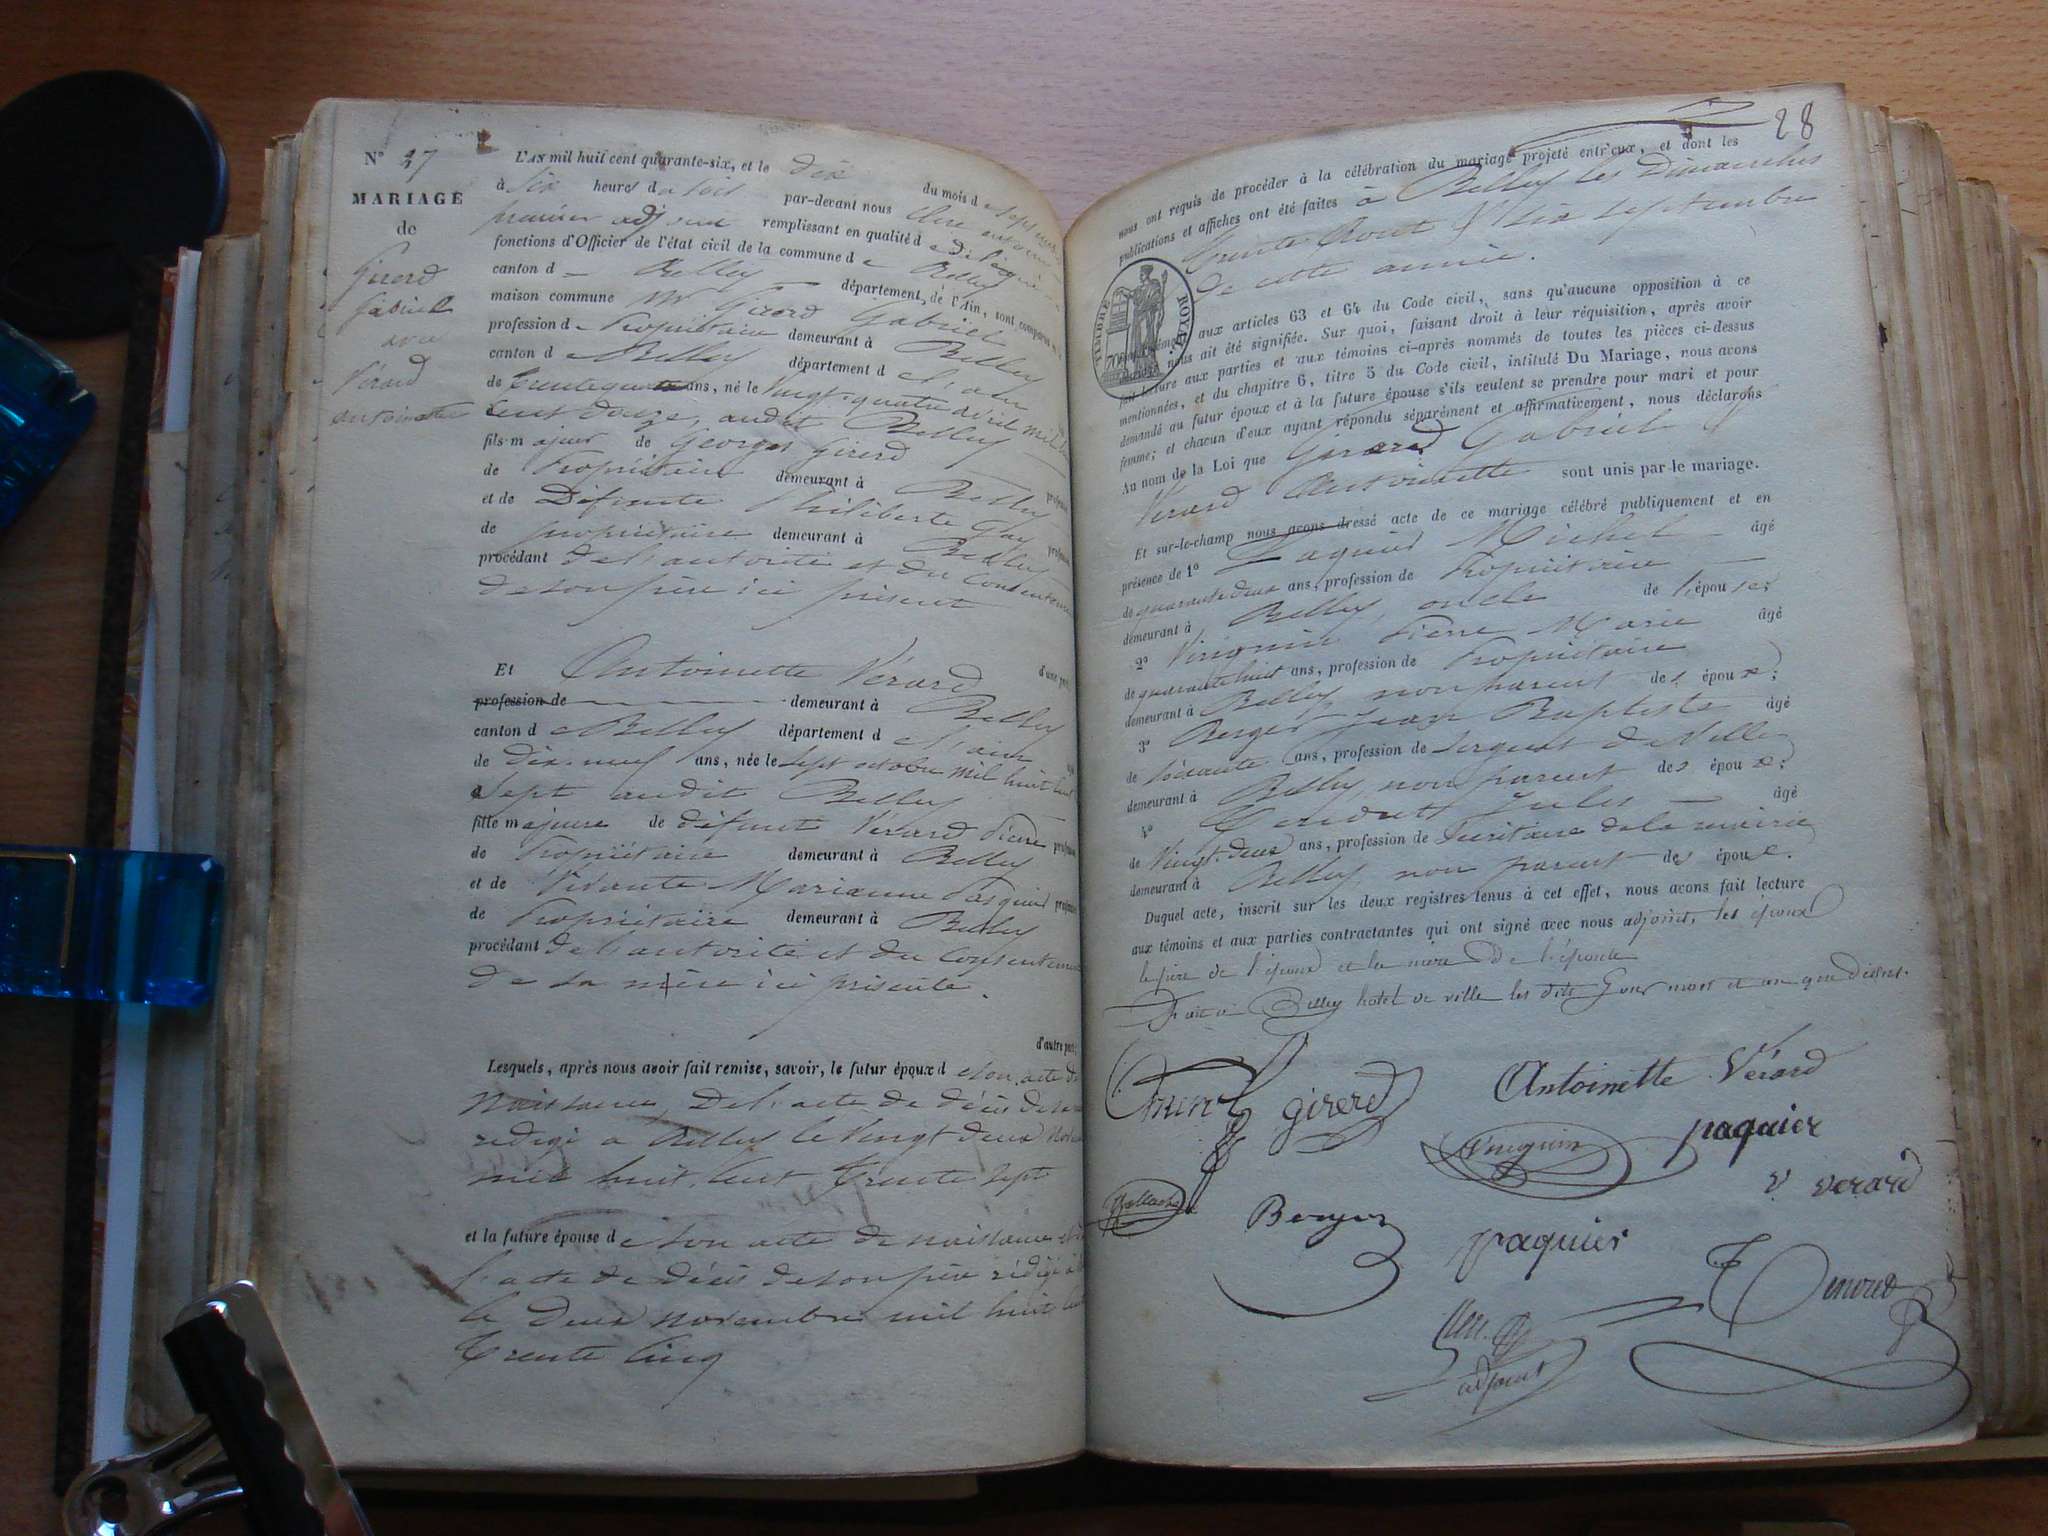 N° 27
MARIAGE
de
Girerd
Gabriel
avec
Vérard
antoinette
L'AN mil huit cent quarante-six, et le dix du mois de septembre
à six heures du soir par-devant nous
premier adjoint remplissant en qualité de délégué
fonctions d'Officier de l'état civil de la commune de Belley
canton d Belley département de l'Ain, sont comparus
maison commune Mr Girerd Gabriel
profession de Propriétaire demeurant à Belley
canton de Belley département de l'ain
de trente quatre ans, né le vingt-quatre avril mil huit
cent douze, audit Belley
fils majeur de Georges Girerd
de Propriétaire demeurant à Belley profession
et de Défunte Philiberte Gay
de propriétaire demeurant à Belley profession
procédant de l'autorité et du consentement
de son père ici présent
d'une part,
Et Antoinette Vérard
profession de demeurant à Belley
canton de Belley département de l'ain
de dix-neuf ans, née le sept octobre mil huit cent
sept audit Belley
fille majeure de défunt Vérard Pierre profession
de Propriétaire demeurant à Belley
et de Vivante Marianne Pasquier profession
de Propriétaire demeurant à Belley
procédant de l'autorité et du consentement
de sa mère ici présente.
d'autre part;
Lesquels, après nous avoir fait remise, savoir, le futur époux de son acte de
Naissance, De l'acte de décès de sa
redigé à Belley le vingt deux
mil huit cent trente sept
et la future épouse de son acte de naissance
l'acte de décès de son père rédigé à
le deux novembre mil huit cent
trente cinq
28
nous ont requis de procéder à la célébration du mariage projeté entr'eux, et dont les
publications et affiches ont été faites à Belley les Dimanches
trente Août & six septembre
de cette année.
TIMBRE ROYAL
70
aux articles 63 et 64 du Code civil, sans qu'aucune opposition à ce
nous ait été signifiée. Sur quoi, faisant droit à leur réquisition, après avoir
fait lecture aux parties et aux témoins ci-après nommés de toutes les pièces ci-dessus
mentionnées, et du chapitre 6, titre 5 du Code civil, intitulé Du Mariage, nous avons
demandé au futur époux et à la future épouse s'ils veulent se prendre pour mari et pour
femme; et chacun d'eux ayant répondu séparément et affirmativement, nous déclarons
Au nom de la Loi que Girerd Gabriel &
Vérard Antoinette sont unis par le mariage.
Et sur-le-champ nous avons dressé acte de ce mariage célébré publiquement et en
présence de 1° Paquier Michel âgé
de quarante deux ans, profession de Propriétaire
demeurant à Belley, oncle de l'épouse;
2° Vinignin Pierre Marie âgé
de quarante huit ans, profession de Propriétaire
demeurant à Belley, non parent des époux;
3° Berger Jean Baptiste âgé
de soixante ans, profession de Sergent de Ville
demeurant à Belley, non parent des époux;
4° Jules âgé
de Vingt-deux ans, profession de Secrétaire de la mairie
demeurant à Belley non parent des époux.
Duquel acte, inscrit sur les deux registres tenus à cet effet, nous avons fait lecture
aux témoins et aux parties contractantes qui ont signé avec nous adjoint, les époux
le père de l'époux et la mère De l'épouse
Fait à Belley hotel de ville les dits jour mois et an que dessus.
girerd
Antoinette Vérard
paquier
v verard
Berger
paquier
adjoint